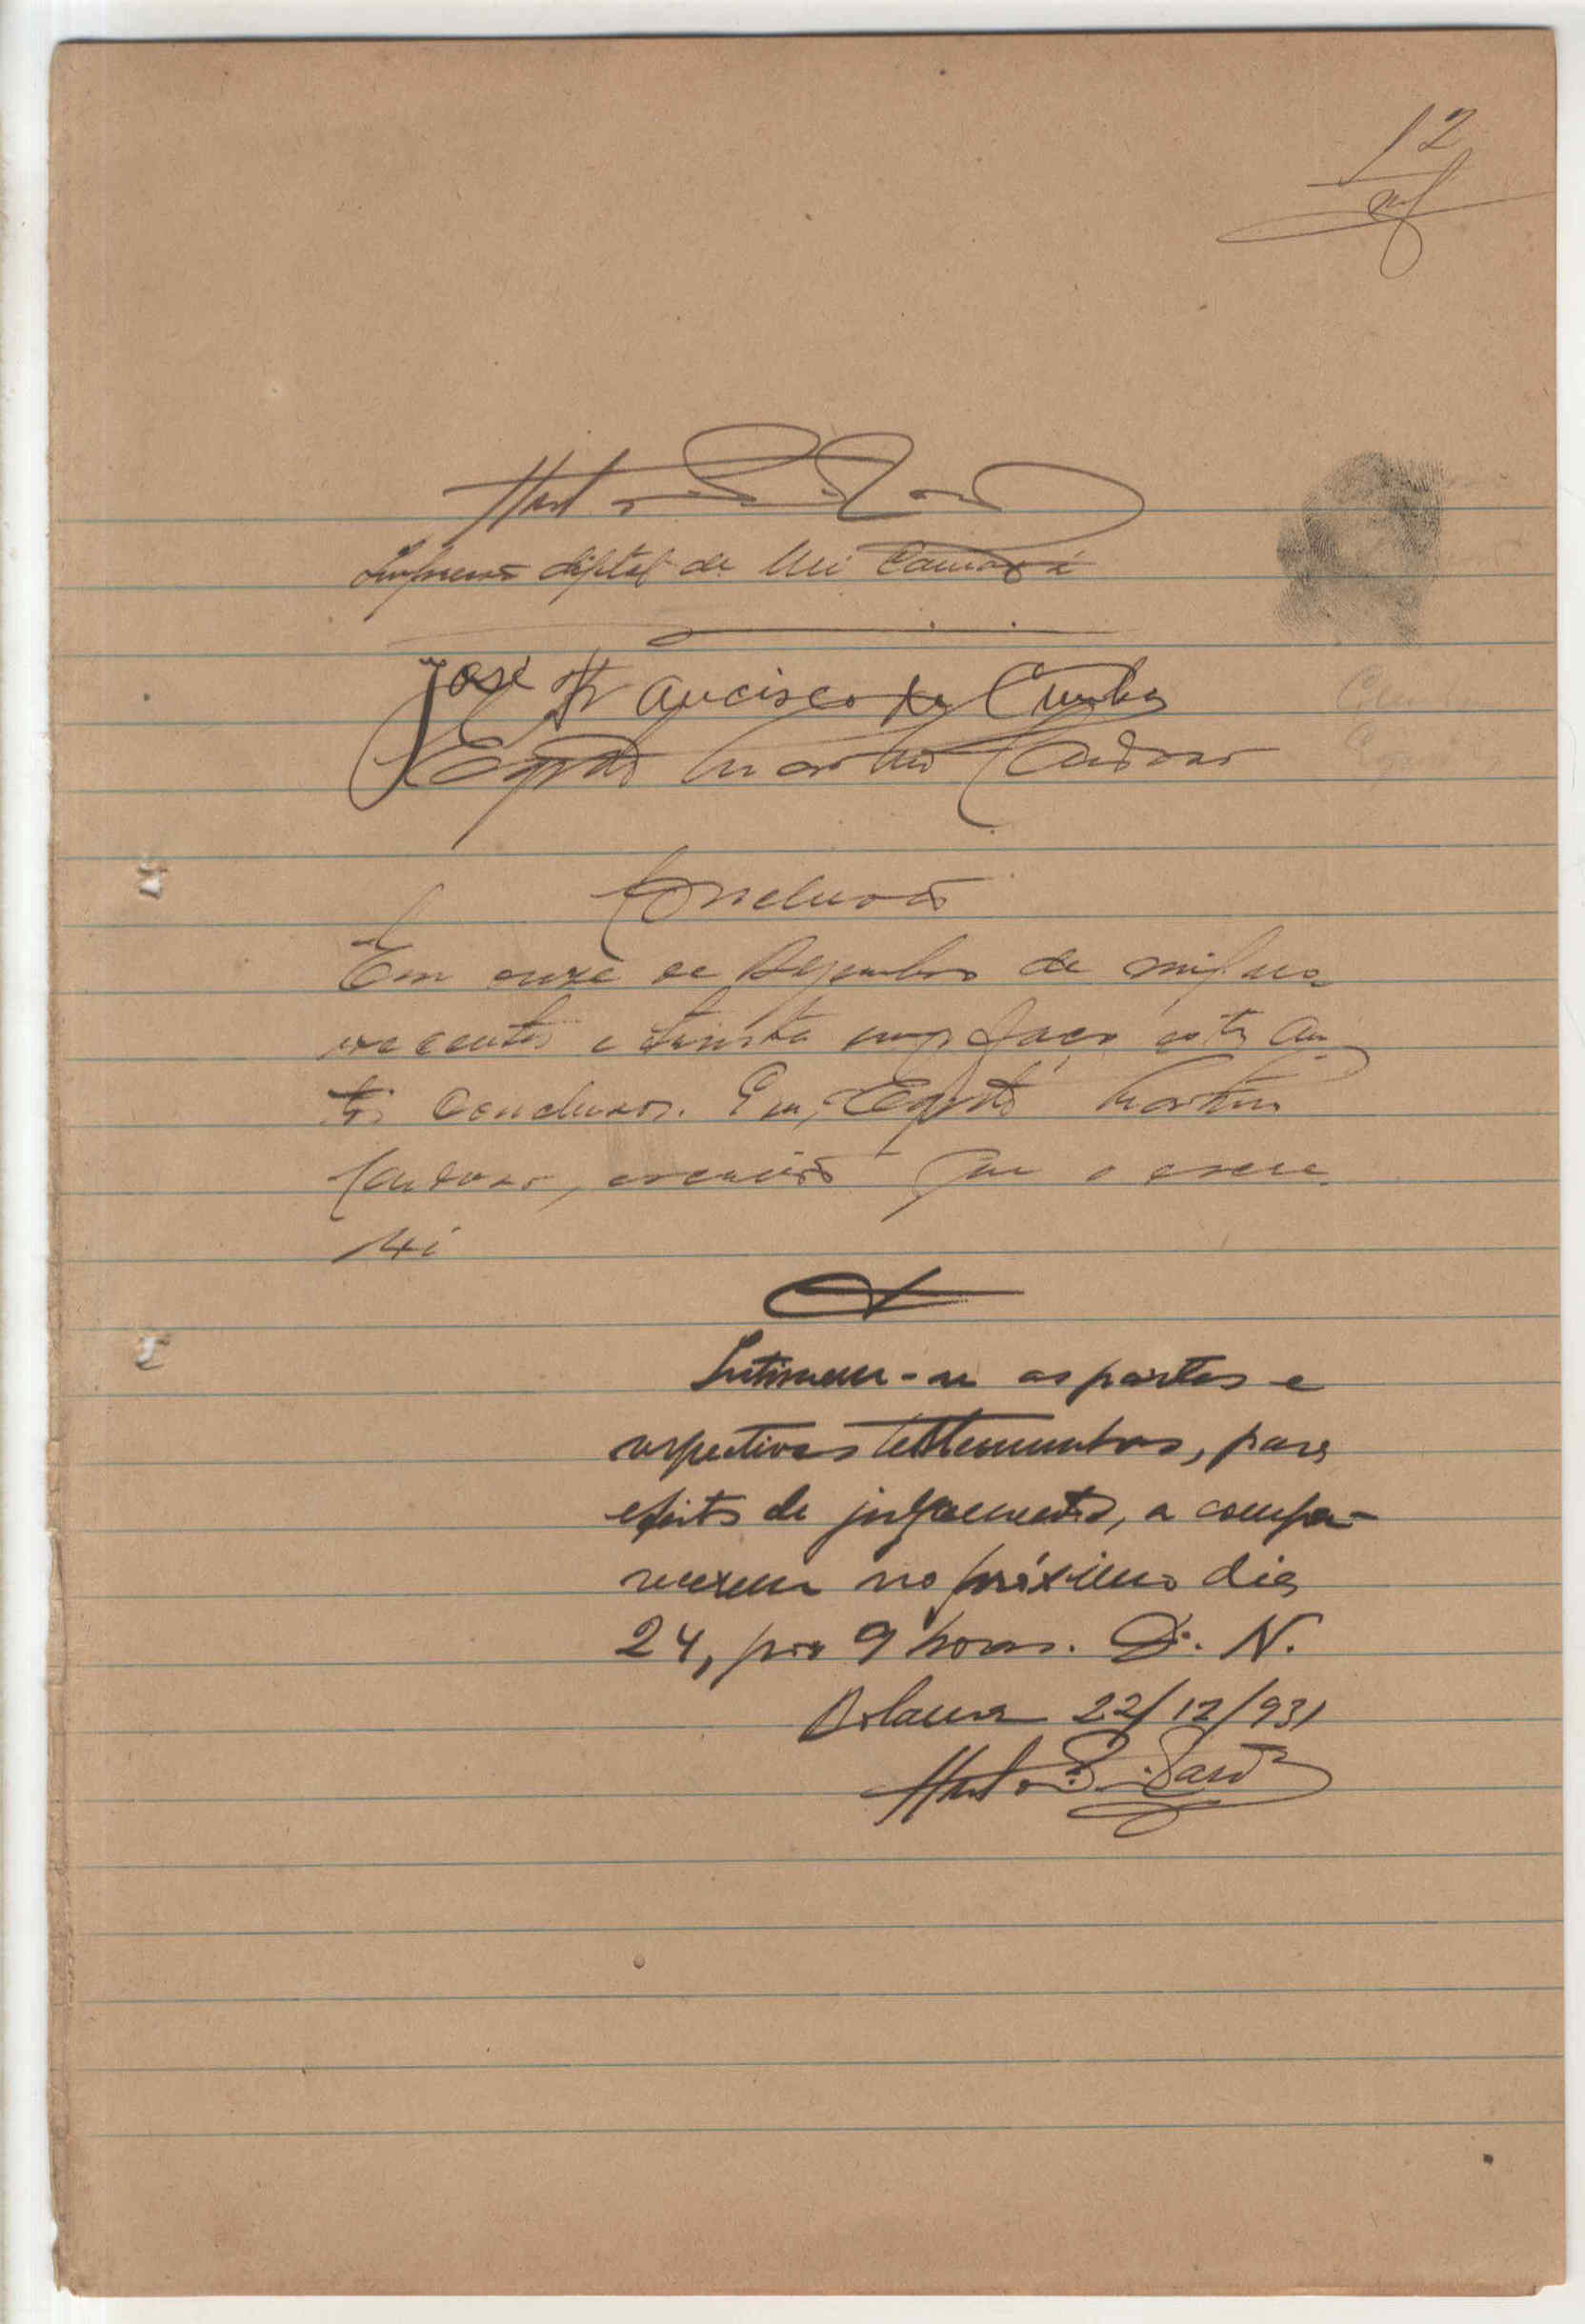 12
Impressão digital de Uri Camará
José Francisco da Cunha
Conclusão
Em onze de Dezembro de mil no-
vecentos e trinta um, faço estes au-
tos conclusos. Eu, Egipto Martins
Cardoso, escrivão que o escre-
vi
Intimem-se as partes e
respectivas testemunhas, para
efeito de julgamento, a compa-
recerem no próximo dia
24, por 9 horas. D. N.
Bolama 22/12/931